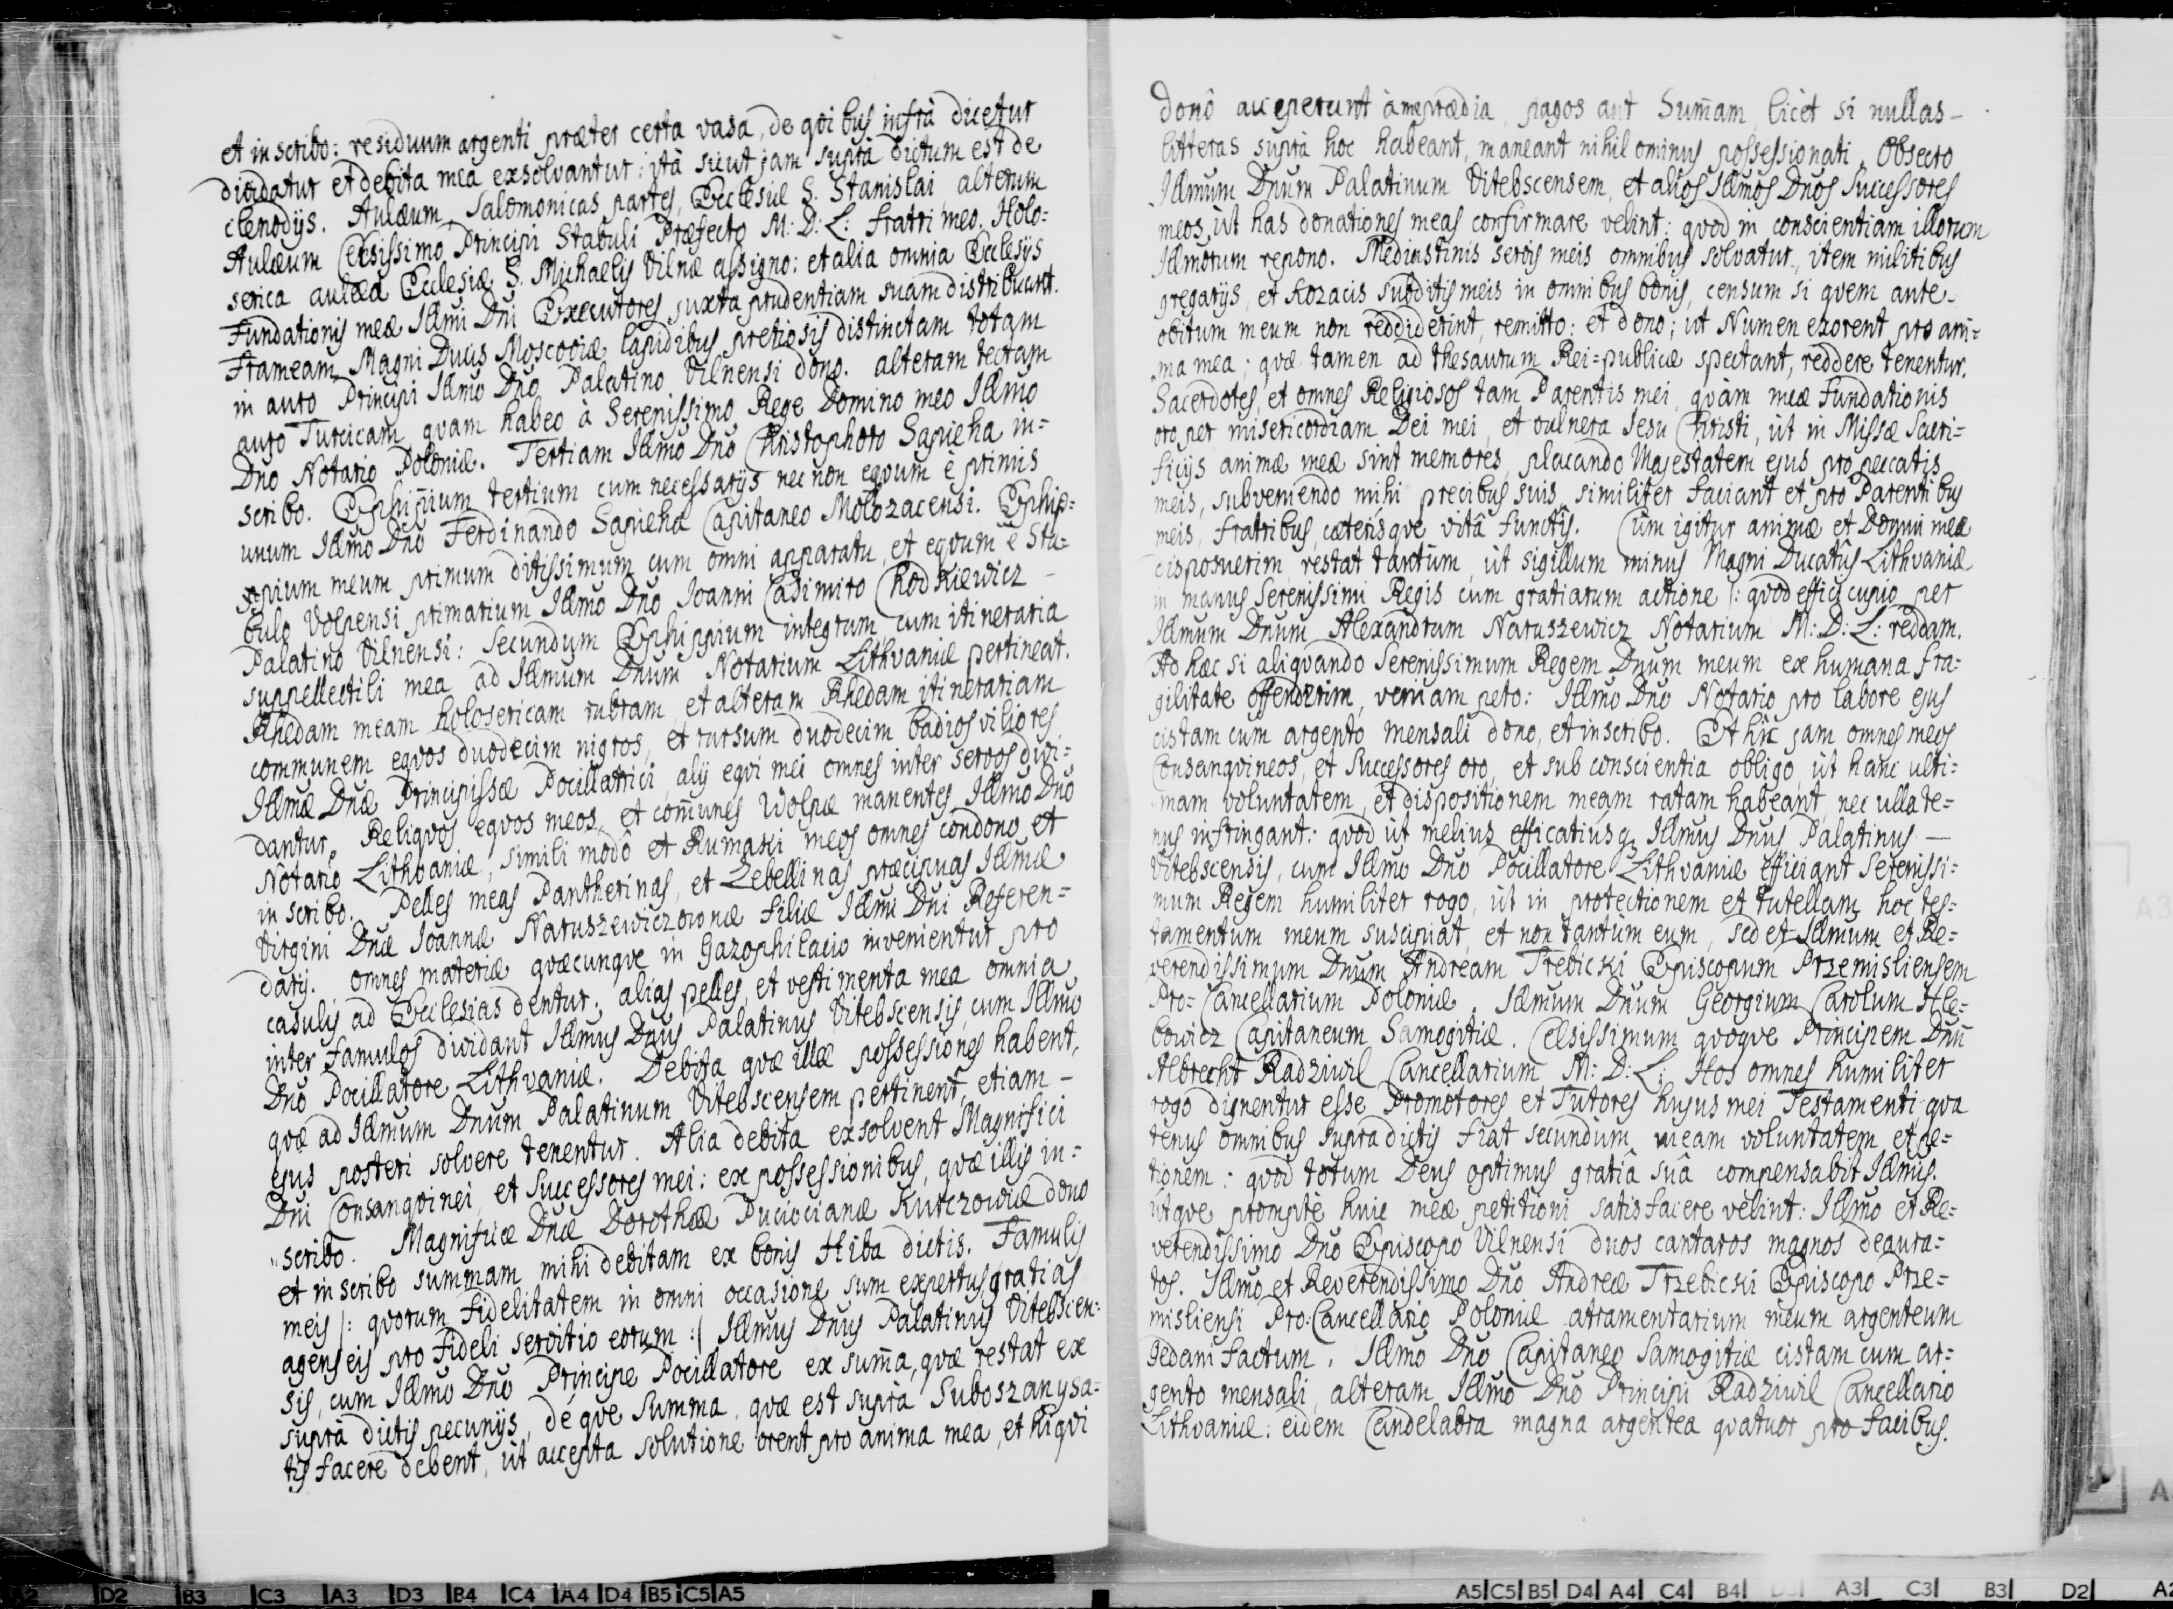 et in scribo: residuum argenti præter certa vasa, de qvibus infrà dicetur
dividatur et debita mea exsolvantur: ità sicut jam suprà dictum est de
clenodijs. Aulæum Salomonicas partes, Ecclesiæ S. Stanislai, alterum
Aulæum Celsissimo Principi Stabuli Præfecto M: D: L: fratri meo. Holo=
serica aulæa Ecclesiæ S. Michaelis Vilnæ assigno: et alia omnia Ecclesijs
Fundationis meæ Illmi Dni Executores juxta prudentiam suam distribuant.
Frameam Magni Ducis Moscoviæ lapidibus pretiosis distinctam totam
in auro Principi Illmo Dno Palatino Vilnensi dono. alteram tectam
auro Turcicam quam habeo à Serenissimo Rege Domino meo Illmo
Dno Notario Poloniæ. Tertiam Illmo Dno Christophoro Sapieha in=
scribo. Ephippium tertium cum necessarijs nec non eqvum è primis
unum Illmo Dno Ferdinando Sapieha Capitaneo Molozacensi. Ephip=
pium meum primum ditissimum cum omni apparatu, et eqvum è Sta=
bulo Volpensi primarium Illmo Dno Joanni Casimiro Chodkiewicz –
Palatino Vilnensi: Secundum Ephippium integrum cum itineraria
suppellectili mea ad Illmum Dnum Notarium Lithvaniæ pertineat.
Rhedam meam holosericam rubram, et alteram Rhedam itinerariam
communem eqvos duodecim nigros, et rursum duodecim badios viliores
Illmæ Dnæ Principissæ Pocillatrici, alij eqvi mei omnes inter servos divi=
dantur. Reliqvos eqvos meos, et com̄unes Wolpæ manentes Illmo Dno
Notario Lithvaniæ, simili modô et Rumasii meos omnes condono, et
in scribo. Pelles meas Pantherinas, et Zebellinas præcipuas Illmæ
Virgini Dnæ Joannæ Naruszewiczownæ filiæ Illmi Dni Referen=
darij. omnes materiæ qvæcunqve in Gazophilacio invenientur pro
casulis ad Ecclesias dentur; alias pelles, et vestimenta mea omnia
inter famulos dividant Illmus Dnus Palatinus Vitebscensis, cum Illmo
Dno Pocillatore Lithvaniæ. Debita qvæ illæ possessiones habent,
qvæ ad Illmum Dnum Palatinum Vitebscensem pertinent, etiam –
ejus posteri solvere tenentur. Alia debita exsolvent Magnifici
Dni Consangvinei, et Successores mei: ex possessionibus, qvæ illis in=
scribo. Magnificæ Dnæ Dorotheæ Puciocianæ Kurczowiæ dono
et in scribo summam mihi debitam ex bonis Hiba dictis. Famulis
meis |: qvorum fidelitatem in omni occasione sum expertus, gratias
agens eis pro fideli servitio eorum :| Illmus Dnus Palatinus Vitebscen=
sis, cum Illmo Dno Principe Pocillatore ex sum̄a, qvæ restat ex
suprà dictis pecunijs, deqve Summa, qvæ est suprà Suboszany sa=
tis facere debent, ùt accepta solutione orent pro anima mea, et hi qvi
donô acceperunt à me prædia, pagos aut Sum̄am, licèt si nullas –
litteras suprà hoc habeant, maneant nihilominus possessionati. Obsecro
Illmum Dnum Palatinum Vitebscensem, et alios Illmos Dnos Successores
meos, ùt has donationes meas confirmare velint: qvod in conscientiam illorum
Illmorum repono. Mediastinis servis meis omnibus solvatur, item militibus
gregarijs, et Kozacis subditis meis in omnibus bonis, censum si qvem ante
obitum meum non reddiderint, remitto: et dono; ùt Numen exorent pro ani=
ma mea; qvæ tamen ad thesaurum Rei=publicæ spectant, reddere tenentur.
Sacerdotes, et omnes Religiosos tam Parentis mei, qvàm meæ Fundationis
oro, per misericordiam Dei mei, et vulnera Jesu Christi, ùt in Missæ Sacri=
ficijs animæ meæ sint memores, placando Majestatem ejus pro peccatis
meis, subveniendo mihi precibus suis, similiter faciant et pro Parentibus
meis, fratribus, cæterisqve vitâ functis. Cùm igitur animæ et Domui meæ
disposuerim, restat tantùm, ùt sigillum minus Magni Ducatûs Lithvaniæ
in manus Serenissimi Regis cum gratiarum actione |: qvod effici cupio per
Illmum Dnum Alexandrum Naruszewicz Notarium M: D: L: reddam.
Ad hæc si aliqvando Serenissimum Regem Dnum meum ex humana fra=
gilitate offenderim, veniam peto: Illmo Dno Notario pro labore ejus
cistam cum argento mensali dono, et inscribo. Et hìc jam omnes meos
Consangvineos, et Successores oro, et sub conscientia obligo, ùt hanc ulti=
mam voluntatem, et dispositionem meam ratam habeant, nec ullate=
nus infringant: qvod ùt melius, efficatiusq Illmus Dnus Palatinus –
Vitebscensis, cum Illmo Dno Pocillatore Lithvaniæ efficiant Serenissi=
mum Regem humiliter rogo, ùt in protectionem et tutellam hoc tes=
tamentum meum suscipiat, et non tantùm eum, sed et Illmum et Re=
verendissimum Dnum Andream Trebicki Episcopum Przemisliensem
Pro=Cancellarium Poloniæ, Illmum Dnum Georgium Carolum Hle=
bowicz Capitaneum Samogitiæ. Celsissimum qvoqve Principem Dnū
Albrecht Radziwil Cancellarium M: D: L: Hos omnes humiliter
rogo dignentur esse Promotores et Tutores hujus mei Testamenti qva
tenus omnibus supradictis fiat secundùm meam voluntatem et pe=
tionem: qvod totum Deus optimus gratiâ suâ compensabit Illmis.
ùtqve promptè huic meæ petitioni satisfacere velint: Illmo et Re=
verendissimo Dno Episcopo Vilnensi duos cantaros magnos deaura=
tos. Illmo et Reverendissimo Dno Andreæ Trzebicki Episcopo Prze=
misliensi Pro:Cancellario Poloniæ atramentarium meum argenteum
Gedani factum. Illmo Dno Capitaneo Samogitiæ cistam cum ar=
gento mensali, alteram Illmo Dno Principi Radziwil Cancellario
Lithvaniæ: eidem Candelabra magna argentea qvatuor pro facibus.
D2 B3 C3 A3 D3 B4 C4 A4 D4 B5 C5 A5
A5 C5 B5 D4 A4 C4 B4 D3 A3 C3 B3 D2